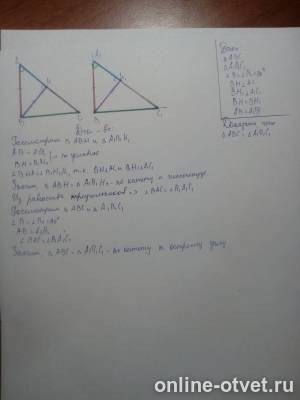 Дано:
△ABC
△A₁B₁C₁
∠B=∠B₁=90°
BH⊥AC
B₁H₁⊥A₁C₁
BH=B₁H₁
AB=A₁B₁
Доказать, что
△ABC=△A₁B₁C₁
Док - во:
Рассмотрим △ABH и △A₁B₁H₁
AB=A₁B₁
BH=B₁H₁ } по условию
т.к. BH⊥AC и B₁H₁⊥A₁C₁
Значит, △ABH=△A₁B₁H₁ - по катету и гипотенузе
Из равенства треугольников => ∠BAC=∠B₁A₁C₁
Рассмотрим △ABC и △A₁B₁C₁
∠B=∠B₁=90°
AB=A₁B₁
∠BAC=∠B₁A₁C₁
Значит, △ABC=△A₁B₁C₁ - по катету и острому углу
online-otvet.ru